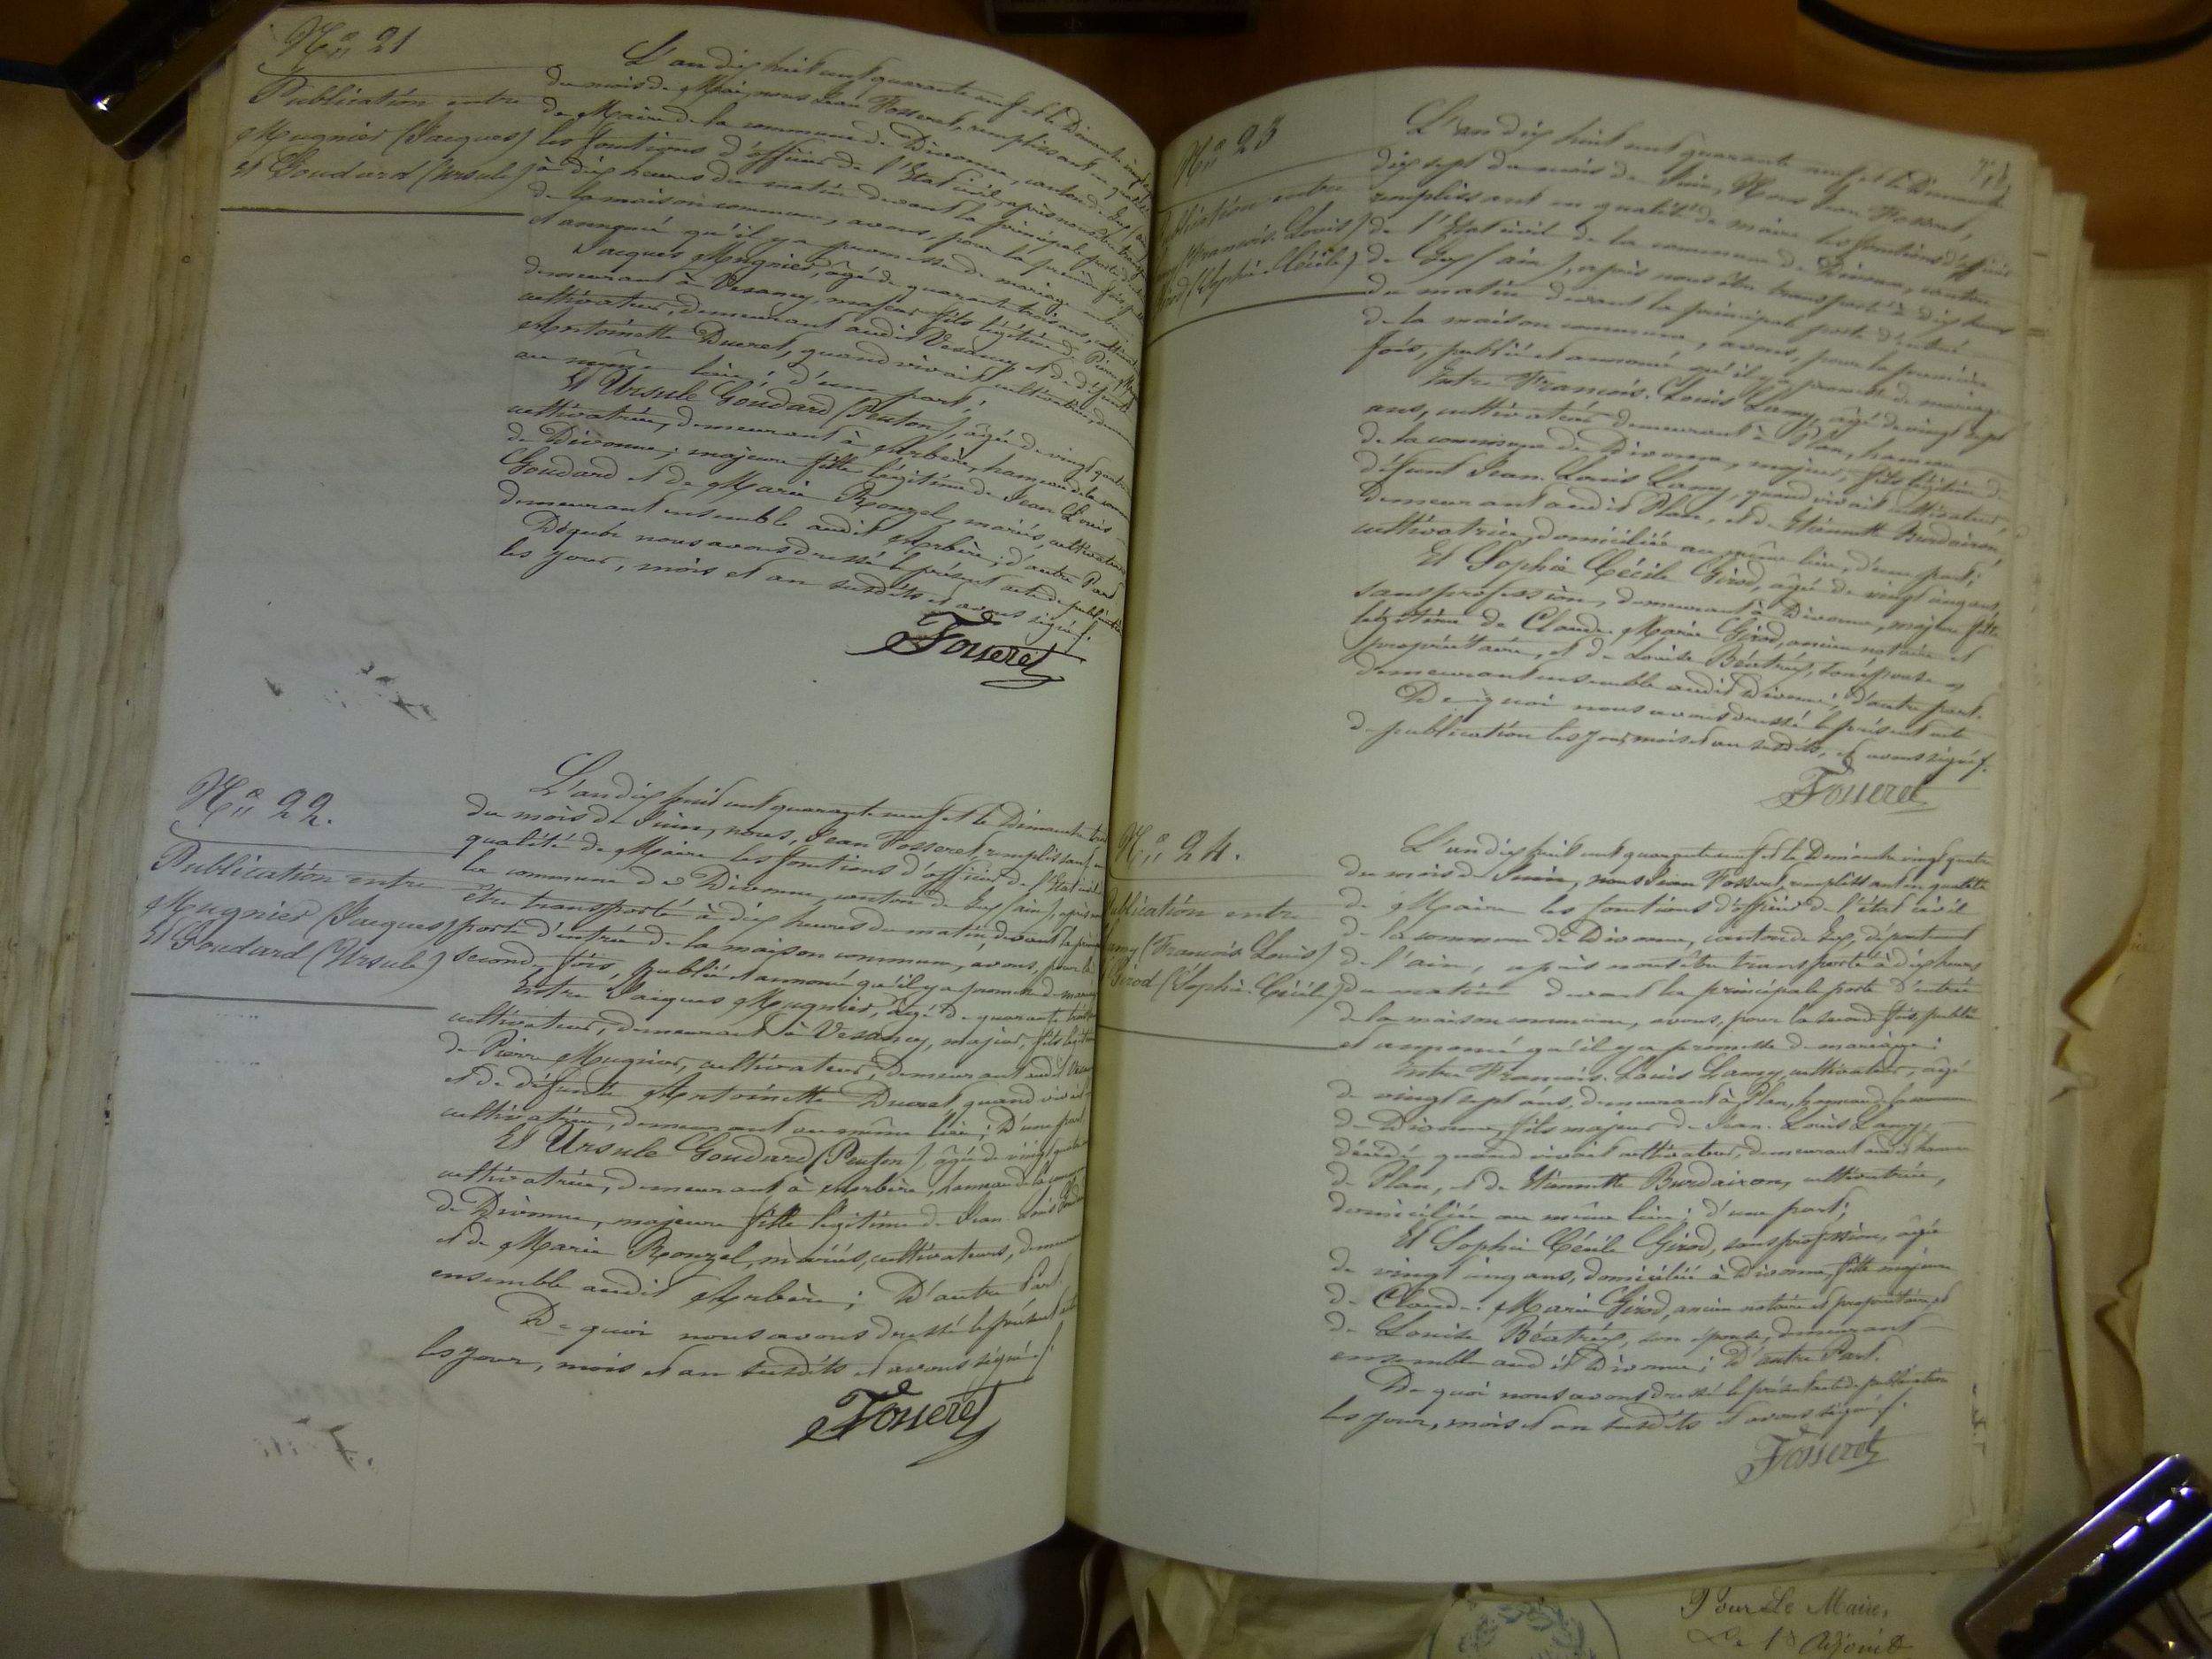 N° 21
Publication entre
Mugnier (Jacques)
et Goudard (Ursule)
L'an dix huit cent quarante neuf et le Dimanche
du mois de Mai, nous Jean Fosseret, remplissant en qualité
de Maire de la commune de Divonne, canton de Gex
les fonctions d'officier de l'Etat civil, après nous être
à dix heures du matin devant la principale porte
de la maison commune, avons, pour la première fois,
et annoncé qu'il y a promesse de mariage entre
Jacques Mugnier, âgé de quarante trois ans,
demeurant à Vesancy, majeur, fils légitime de Pierre
cultivateur, demeurant audit Vesancy et de défunte
Antoinette Ducret, quand vivait cultivatrice,
au même lieu; d'une part;
Et Ursule Goudard (Penton), âgée de vingt quatre
cultivatrice, demeurant à Arbère, hameau de la
de Divonne, majeure fille légitime de Jean Louis
Goudard et de Marie Ronzel, mariés, cultivateurs
demeurant ensemble audit Arbère; d'autre Part
De quoi nous avons dressé le présent acte de publication
les jour, mois et an susdits et avons signé.
Fosseret
N° 22.
Publication entre
Mugnier (Jacques)
et Goudard (Ursule)
L'an dix huit cent quarante neuf et le Dimanche trois
du mois de Juin, nous, Jean Fosseret, remplissant en
qualité de Maire les fonctions d'officier de l'Etat civil
la commune de Divonne, canton de Gex (ain), après
être transporté à dix heures du matin, devant la
porte d'entrée de la maison commune, avons, pour la
seconde fois, publié et annoncé qu'il y a promesse de mariage
Entre Jacques Mugnier, âgé de quarante trois
cultivateur, demeurant à Vesancy, majeur, fils légitime
de Pierre Mugnier, cultivateur, demeurant audit
et de défunte Antoinette Ducret, quand vivait
cultivatrice, demeurant au même lieu; D'une part,
Et Ursule Goudard (Penton), âgée de vingt quatre
cultivatrice, demeurant à Arbère, hameau de la commune
de Divonne, majeure fille légitime de Jean Louis
et de Marie Ronzel, mariés, cultivateurs,
ensemble audit Arbère; D'autre Part.
De quoi nous avons dressé le présent acte
les jour, mois et an susdits et avons signé.
Fosseret
N° 23
Publication entre
(François Louis)
Girod (Sophie Cécile)
L'an dix huit cent quarante neuf et le Dimanche
dix sept du mois de Juin, Nous Jean Fosseret,
remplissant en qualité de maire les fonctions d'officier
de l'Etat civil de la commune de Divonne, canton
de Gex (ain), après nous être transporté à dix heures
du matin devant la principale porte d'entrée
de la maison commune, avons, pour la première
fois, publié et annoncé qu'il y a promesse de mariage
Entre François Louis Lamy, âgé de vingt sept
ans, cultivateur demeurant à Plan, hameau
de la commune de Divonne, majeur, fils légitime de
défunt Jean Louis Lamy, quand vivait cultivateur,
demeurant audit Plan, et de Etiennette Burdairon,
cultivatrice, domiciliée au même lieu, d'une part;
Et Sophie Cécile Girod, âgée de vingt cinq ans,
sans profession, demeurant à Divonne, majeure fille
légitime de Claude Marie Girod, ancien notaire et
propriétaire, et de Louise Béatrix, son épouse
demeurant ensemble audit Divonne, d'autre part.
De quoi nous avons dressé le présent acte
de publication les jour, mois et an susdits, et avons signé.
Fosseret
N° 24.
Publication entre
Lamy (François Louis)
Girod (Sophie Cécile)
L'an dix huit cent quarante neuf et le Dimanche vingt quatre
du mois de Juin, nous Jean Fosseret, remplissant en qualité
de Maire les fonctions d'officier de l'état civil
de la commune de Divonne, canton de Gex, département
de l'ain, après nous être transporté à dix heures
du matin devant la principale porte d'entrée
de la maison commune, avons, pour la seconde fois, publié
et annoncé qu'il y a promesse de mariage:
Entre François Louis Lamy, cultivateur, âgé
de vingt sept ans, demeurant à Plan, hameau de la commune
de Divonne, fils majeur de Jean Louis Lamy,
décédé quand vivait cultivateur, demeurant audit hameau
de Plan, et de Etiennette Burdairon, cultivatrice,
domiciliée au même lieu; d'une part;
Et Sophie Cécile Girod, sans profession, âgée
de vingt cinq ans, domiciliée à Divonne, fille majeure
de Claude Marie Girod, ancien notaire et propriétaire, et
de Louise Béatrix, son épouse, demeurant
ensemble audit Divonne; D'autre Part.
De quoi nous avons dressé le présent acte de publication
les jour, mois et an susdits et avons signé.
Fosseret
Pour Le Maire,